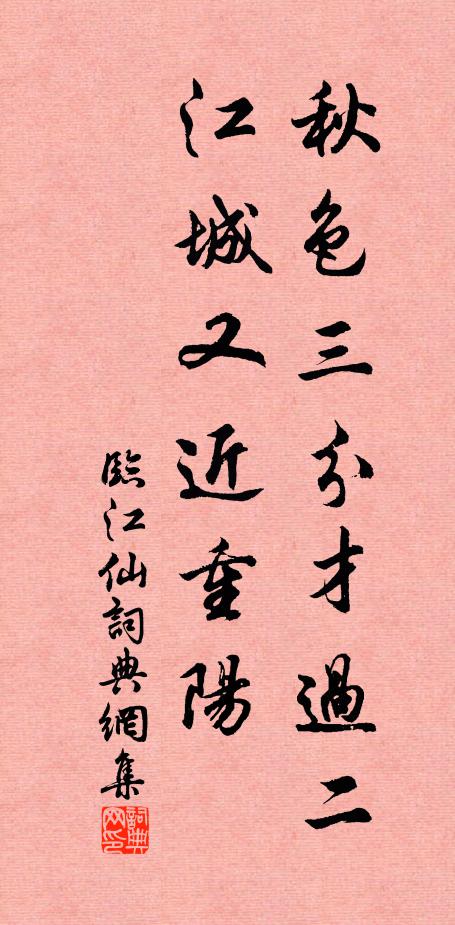 秋色三分才過二
江城又近重陽
臨江仙詞典網集
詞典网印